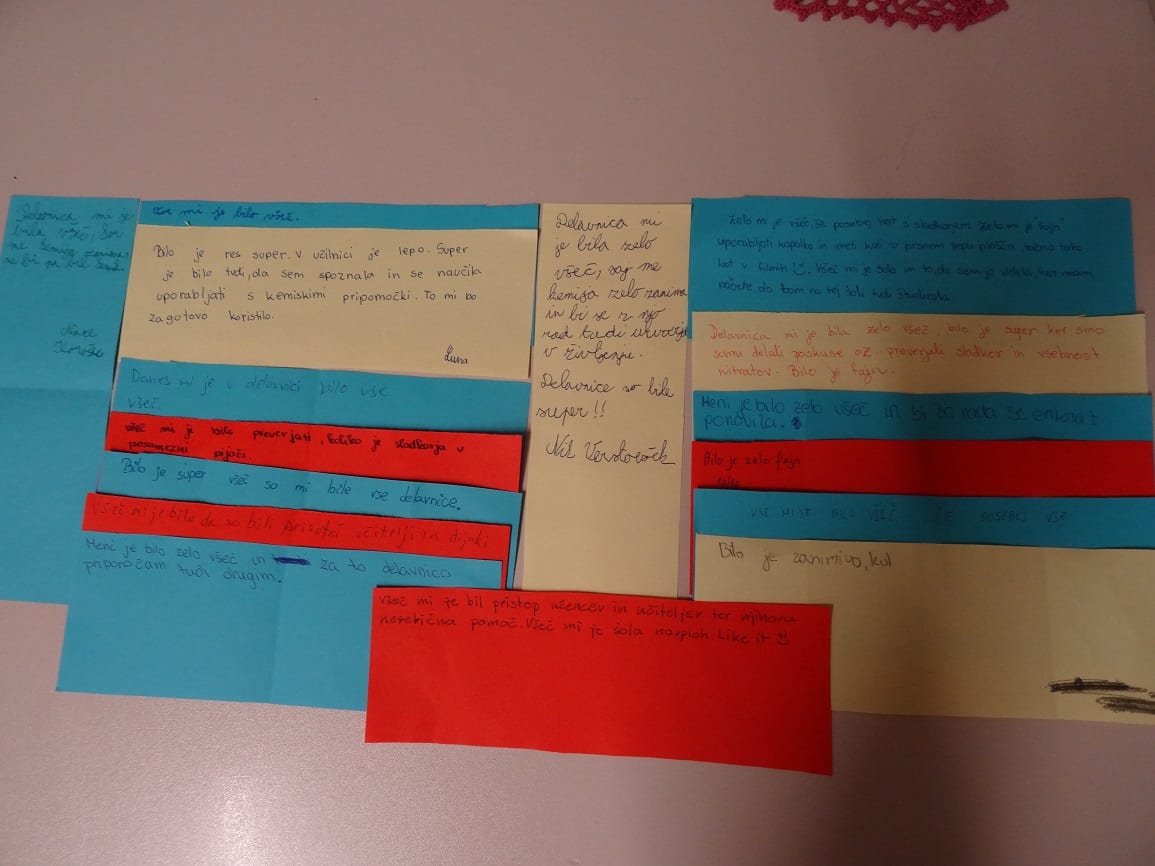 Delavnica mi je
bila všeč,
me kemija zanima,
Nace
Vse mi je bilo všeč.
Bilo je res super. V učilnici je lepo. Super
je bilo tudi, da sem spoznala in se naučila
uporabljati s kemiskimi pripomočki. To mi bo
zagotovo koristilo.
Luna
Danes mi je v delavnici bilo vse
všeč.
všeč mi je bilo preverjati, koliko je sladkorja v
posamezni pijači.
Bilo je super všeč so mi bile vse delavnice.
Všeč mi je bilo da so bili prisotni učitelji in dijaki
Meni je bilo zelo všeč in za to delavnico
priporočam tudi drugim.
Delavnica mi
je bila zelo
všeč, saj me
kemija zelo zanima
in bi se z njo
rad tudi ukvarjal
v življenju.
Delavnice so bile
super!!
Nil
všeč mi je bil pristop učencev in učiteljev ter njihova
nesebična pomoč. Všeč mi je šola nasploh. Like it
Zelo mi je všeč, še posebej test s sladkorjem. Zelo mi je "fajn"
uporabljati kapalko in imeti halje, točno tako
kot v filmih. Všeč mi je šola in to, da sem jo videla, ker mam
načrte, da bom na tej šoli tudi študirala.
Delavnica mi je bila zelo všeč, bilo je super, ker smo
sami delali poskuse oz. preverjali sladkor in vsebnost
nitratov. Bilo je fajn.
Meni je bilo zelo všeč in bi to rada še enkrat
ponovila.
Bilo je zelo fajn
VSE MI JE BILO VŠEČ ŠE POSEBEJ VSE
Bilo je zanimivo, kul